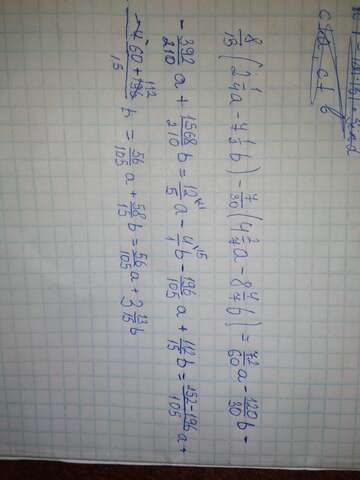 8/15 (2 1/4 a - 4 1/2 b) - 7/30 (4 2/7 a - 8 4/7 b) = 72/60 a - 120/30 b -
- 392/210 a + 1568/210 b = 12/5 a - 4/1 b - 196/105 a + 112/15 b = 252-196/105 a +
-4 60 + 112/15 b = 56/105 a + 58/15 b = 56/105 a + 3 13/15 b